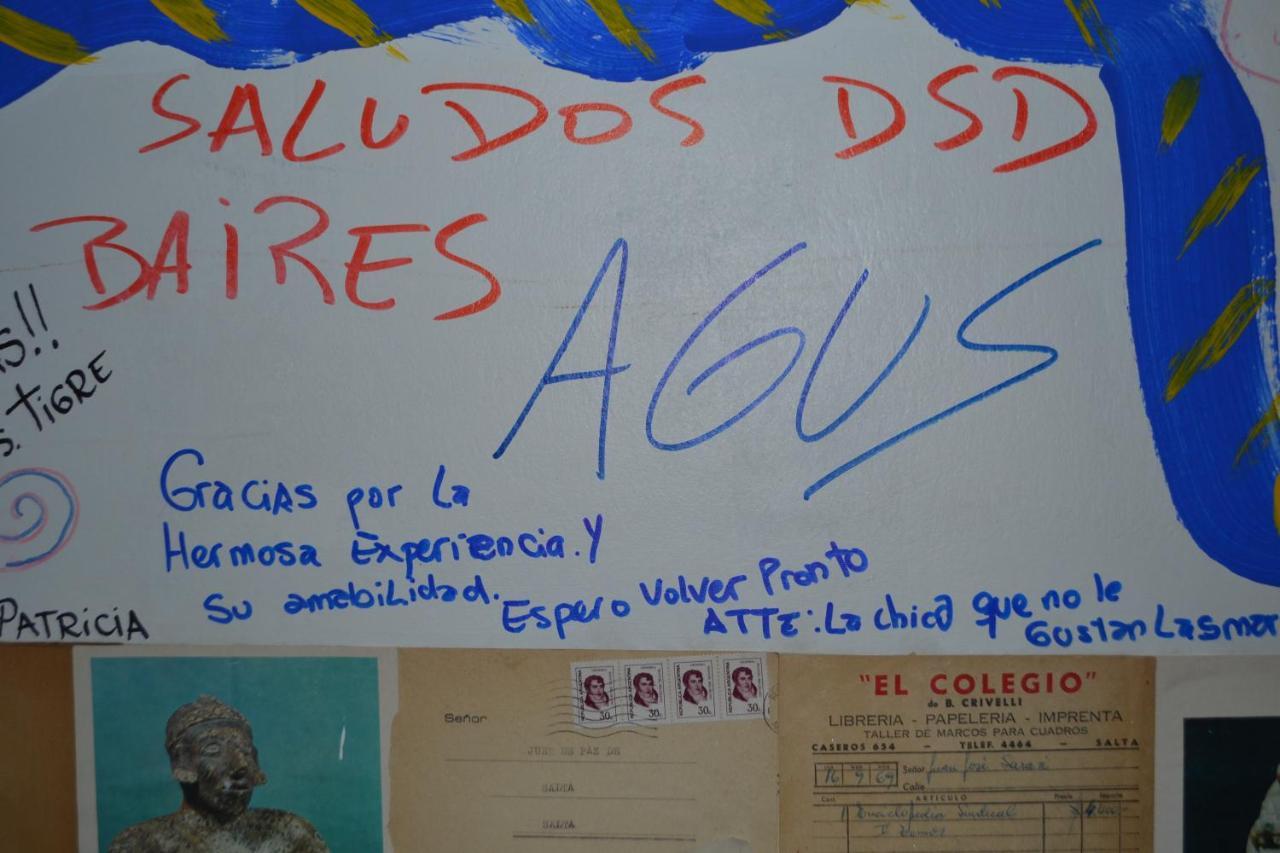 SALUDOS DSD
BAiRES
AGUS
S!!
S. TiGRE
Gracias por La
Hermosa Experiencia. Y
Su amabiLidad.
Espero Volver Pronto
ATTE: La chica que no le
Gustan Las mar
PATRiCiA
Señor
JUEZ DE PAZ DE
SALTA
SALTA
30c
30c
30c
30c
"EL COLEGIO"
de B. CRIVELLI
LIBRERIA - PAPELERIA - IMPRENTA
TALLER DE MARCOS PARA CUADROS
CASEROS 654 - TELEF. 4464 - SALTA
16 9 69 Señor Juan José
Calle
Cant. ARTICULO Precio Importe
1 Enciclopedia Sindical